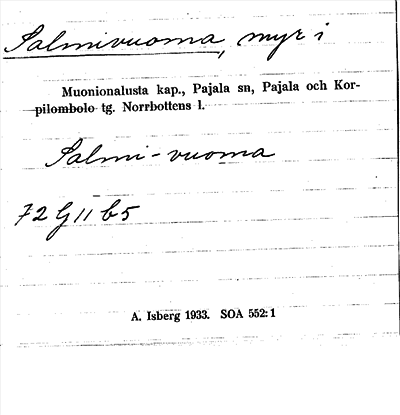 Salmivuoma, myr i
Muonionalusta kap., Pajala sn, Pajala och Kor-
pilombolo tg. Norrbottens l.
Salmi-vuoma
72 G 11 b5
A. Isberg 1933. SOA 552:1